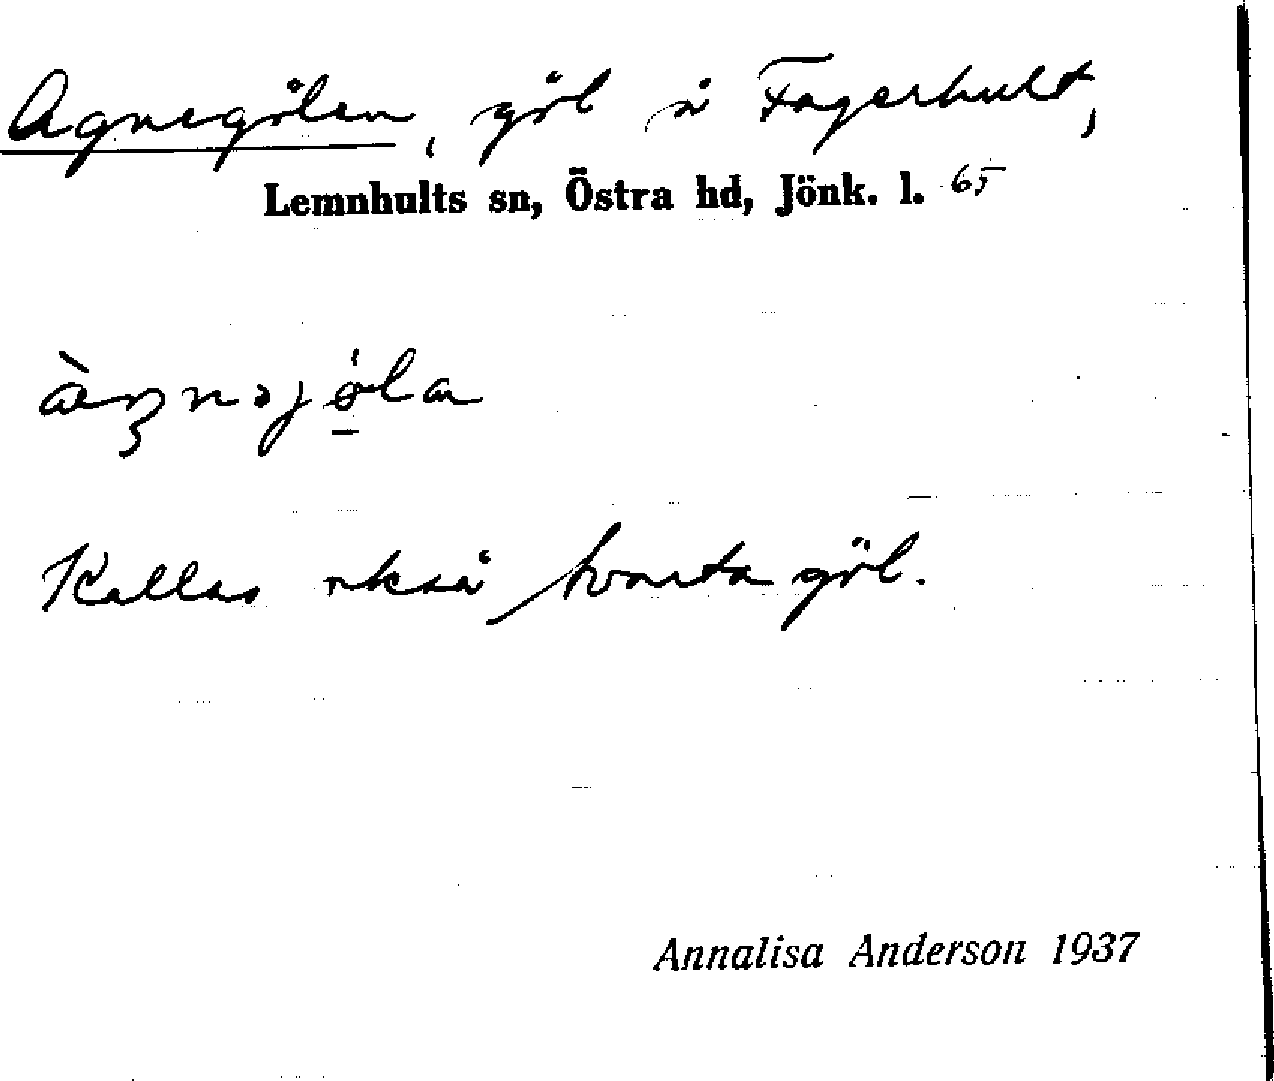 Agnegölen, göl å Fagerhult,
Lemnhults sn, Östra hd, Jönk. l. 65
Kallas också Svarta göl.
Annalisa Anderson 1937